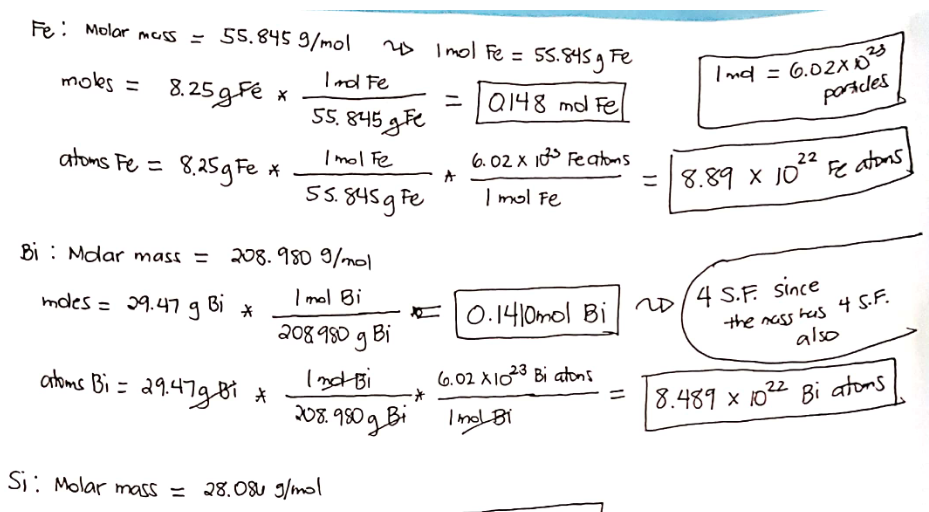 Fe: Molar mass = 55.845 g/mol ⇝ 1 mol Fe = 55.845 g Fe
1 mol = 6.02 x 10^23 particles
moles = 8.25 g Fe * 1 mol Fe / 55.845 g Fe = 0.148 mol Fe
atoms Fe = 8.25 g Fe * 1 mol Fe / 55.845 g Fe * 6.02 x 10^23 Fe atoms / 1 mol Fe = 8.89 x 10^22 Fe atoms
Bi: Molar mass = 208.980 g/mol
moles = 29.47 g Bi * 1 mol Bi / 208.980 g Bi = 0.1410 mol Bi ⇝ 4 S.F. since the mass has 4 S.F. also
atoms Bi = 29.47 g Bi * 1 mol Bi / 208.980 g Bi * 6.02 x 10^23 Bi atoms / 1 mol Bi = 8.489 x 10^22 Bi atoms
Si: Molar mass = 28.086 g/mol